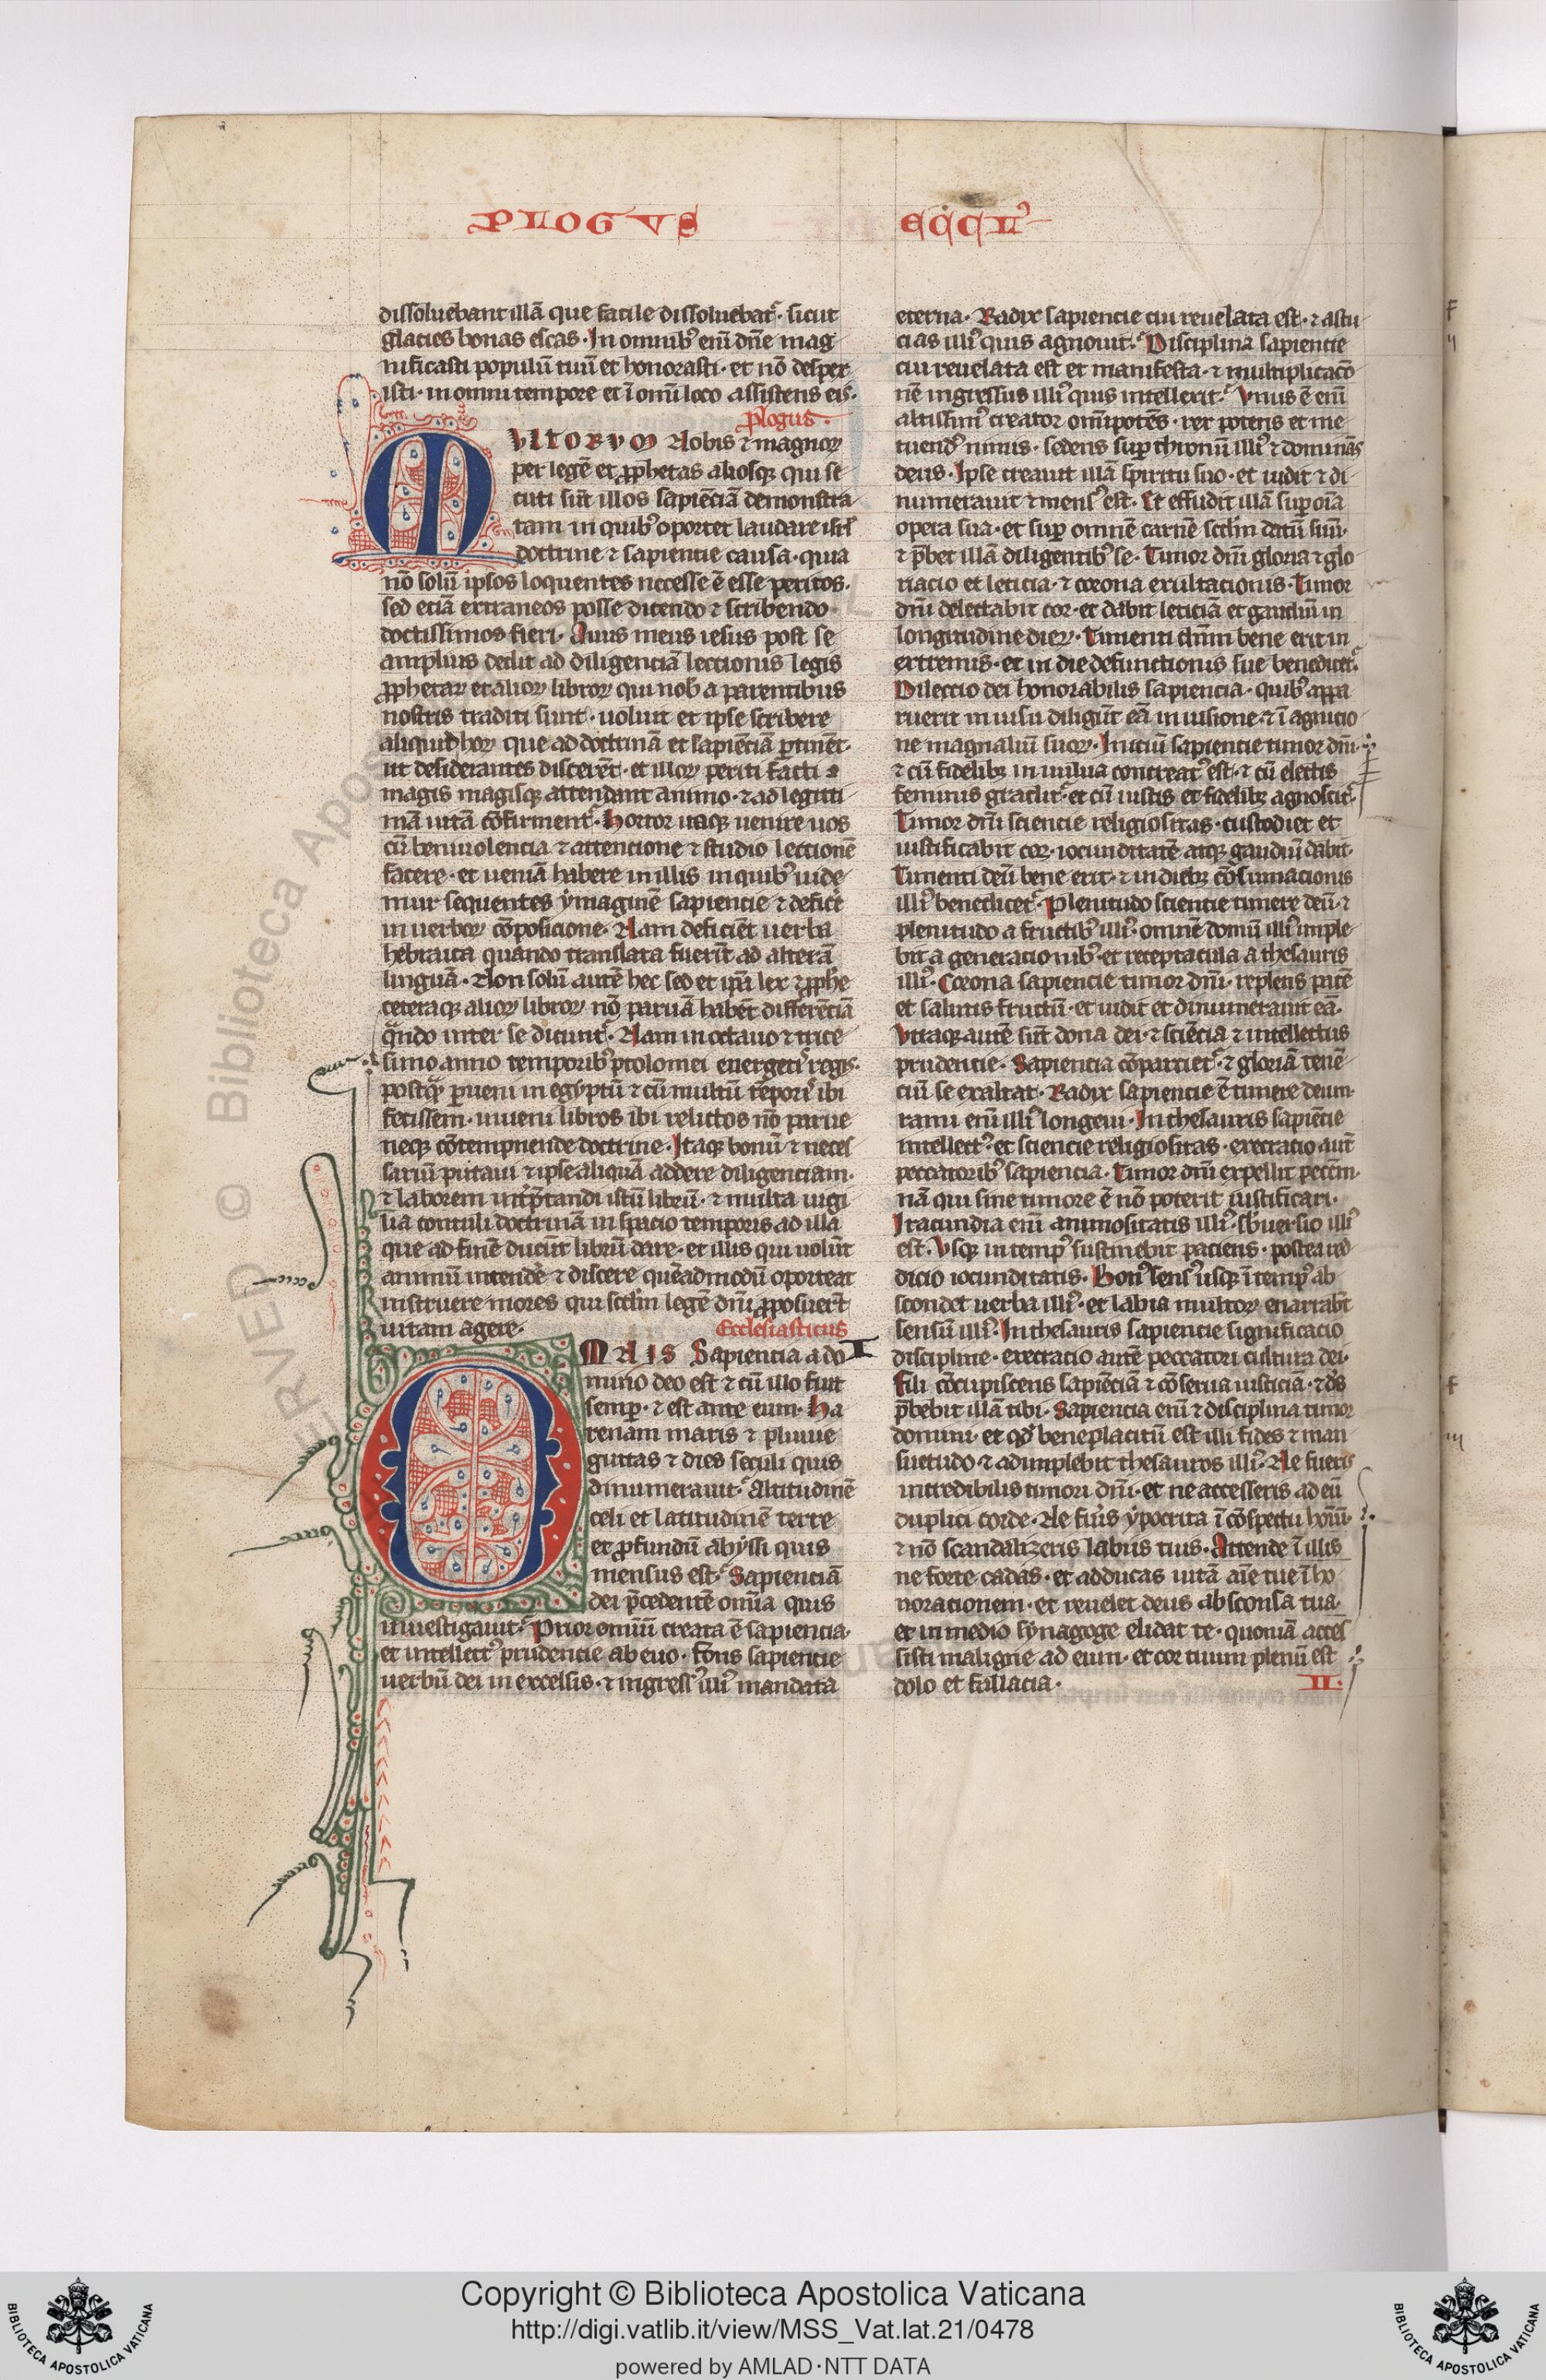 PLOGVS
ECCLI᾽
dissoluebant illā que facile dissoluebat᷑· sicut
glacies bonas escas· In omnib᾽ eni᷑ dn̄e mag
nificasti populū tuū et honorasti· et nō despex
isti· in omni tempore et ī omī loco assistens eis·
Plogus·
MVLTORVM Nobis ⁊ magnoꝝ
per legē et ꝓphetas aliosqꝫ qui se
cuti sūt illos sapiēciā demonstra
tam in quib᾽ oportet laudare isrl̄
doctrine ⁊ sapientie causa· quia
nō solū ipsos loquentes necesse ē esse peritos·
sed etiā extraneos posse dicendo ⁊ scribendo
doctissimos fieri· Auus meus iesus post se
amplius dedit ad diligenciā lectionis legis
ꝓphetaꝝ et alioꝝ libroꝝ qui nob̄ a parentibus
nostris traditi sunt· uoluit et ipse scribere
aliquid hoꝝ que ad doctrinā et sapiēciā ꝑtinēt·
ut desiderantes discerēt· et illoꝝ periti facti
magis magisqꝫ attendant animo· ⁊ ad legitti
mā uitā cōfirment᷑· Hortor itaqꝫ uenire uos
cū beniuolencia ⁊ attencione ⁊ studio lectionē
facere· et ueniā habere in illis in quib᾽ uide
mur sequentes ymaginē sapiencie ⁊ defic᷑e
in uerboꝝ cōposicione· Nam deficiēt uerba
hebraica quando translata fuerīt ad alterā
linguā· Non solū autē hec sed et ip̄a lex ⁊ ꝓphe
ceteraqꝫ alioꝝ libroꝝ nō paruā habēt differēciā
qn̄do inter se dicunt᷑· Nam in octauo ⁊ trice
simo anno temporib᾽ ptolomei euergeti᾽ regis·
postqꝫ̄ ꝑueni in egyptū ⁊ cū multū tēpori᾽ ibi
fecissem· inueni libros ibi relictos nō parue
neqꝫ cōtempnende doctrine· Itaqꝫ bonū ⁊ neces
sariū putaui ⁊ ipse aliquā addere diligenciam·
⁊ laborem int᷑p̄tandi istū librū· ⁊ multa uigi
lia contuli doctrinā in spacio temporis ad illa
que ad finē ducūt librū dare· et illis qui uolūt
animū intend᷑e ⁊ discere quēadmodū oporteat
instruere mores qui scd̄m legē dn̄i ꝓposuer̄t
uitam agere·
Ecclesiasticus
OMNIS Sapiencia a do I
mino deo est ⁊ cū illo fuit
semꝑ· ⁊ est ante euum· Ha
renam maris ⁊ pluuie
guttas ⁊ dies seculi quis
dinumerauit᷑· Altitudinē
celi et latitudinē terre
et ꝓfundū abyssi quis
mensus est᷑· Sapienciā
dei p̄cedentē omīa quis
inuestigauit᷑· Prior omīū creata ē sapiencia·
et intellect᾽ prudencie ab euo· Fons sapiencie
uerbū dei in excelsis· ⁊ ingress᾽ illi᾽ mandata
eterna· Radix sapiencie cui reuelata est· ⁊ astu
cias illi᾽ quis agnouit᷑· Disciplina sapiencie
cui reuelata est et manifesta· ⁊ multiplicacō
nē ingressus illi᾽ quis intellexit᷑· Vnus ē enī
altissim᾽ creator omīpotēs· rex potens et me
tuend᾽ nimis· sedens suꝑ thronū illi᾽ ⁊ dominās
deus· Ipse creauit illā spiritu suo· et uidit ⁊ di
numerauit ⁊ mens᾽ est· Et effudit illā suꝑ oīa
opera sua· et suꝑ omnē carnē scd̄m datū suū·
⁊ p̄bet illā diligentib᾽ se· Timor dn̄i gloria ⁊ glo
riacio et leticia· ⁊ corona exultacionis· Timor
dn̄i delectabit cor· et dabit leticiā et gaudiū in
longitudine dieꝝ· Timenti dn̄m bene erit in
extremis· et in die defunctionis sue benedicet᷑·
Dileccio dei honorabilis sapiencia· quib᾽ appa
ruerit in uisu diligūt eā in uisione ⁊ ī agnicio
ne magnaliū suoꝝ· Iniciū sapiencie timor dn̄i·
⁊ cū fidelibꝫ in uulua concreat᾽ est· ⁊ cū electis
feminis gradit᷑· et cū iustis et fidelibꝫ agnoscit᷑·
Timor dn̄i sciencie religiositas· custodiet et
iustificabit cor· iocunditatē atqꝫ gaudiū dabit·
Timenti deū bene erit· ⁊ in diebꝫ cōsumacionis
illi᾽ benedicet᷑· Plenitudo scientie timere deū· ⁊
plenitudo a fructib᾽ illi᾽· omnē domū illi᾽ imple
bit a generacionib᾽· et receptacula a thesauris
illi᾽· Corona sapiencie timor dn̄i· replens pacē
et salutis fructū· et uidit et dinumerauit eā·
Vtraqꝫ autē sūt dona dei· ⁊ sciēcia ⁊ intellectus
prudentie· Sapiencia cōparciet᷑· ⁊ gloriā tenē
ciū se exaltat· Radix sapiencie ē timere deum·
rami enī illi᾽ longeui· In thesauris sapiēcie
intellect᾽· et sciencie religiositas· execracio aut̄
peccatorib᾽ sapiencia· Timor dn̄i expellit peccm̄·
nā qui sine timore ē nō poterit iustificari·
Iracundia enī animositatis illi᾽· sb᾽uersio illi᾽
est· Vsqꝫ in temp᾽ sustinebit paciens· postea red
dicio iocunditatis· Bon᾽ sens᾽ usqꝫ ī temp᾽ ab
scondet uerba illi᾽· et labia multoꝝ enarrabt̄
sensū illi᾽· In thesauris sapiencie significacio
discipline· execracio autē peccatori cultura dei·
Fili cōcupiscens sapiēciā ⁊ cōserua iusticiā· ⁊ ds̄
p̄bebit illā tibi· Sapiencia enī ⁊ disciplina timor
domini· et qd̄ beneplacitū est illi fides ⁊ man
suetudo ⁊ adimplebit thesauros illi᾽· Ne fueris
incredibilis timori dn̄i· et ne accesseris ad eū
duplici corde· Ne fu᷑is ypocrita ī cōspectu hoīm̄·
⁊ nō scandalizeris labiis tuis· Attende ī illis
ne forte cadas· et adducas uitā aīe tue īho
norationem· et reuelet deus absconsa tua·
et in medio synagoge elidat te· quoniā acces
sisti maligne ad eum· et cor tuum plenū est
dolo et fallacia· II·
Copyright © Biblioteca Apostolica Vaticana
http://digi.vatlib.it/view/MSS_Vat.lat.21/0478
powered by AMLAD·NTT DATA
BIBLIOTECA APOSTOLICA VATICANA
BIBLIOTECA APOSTOLICA VATICANA